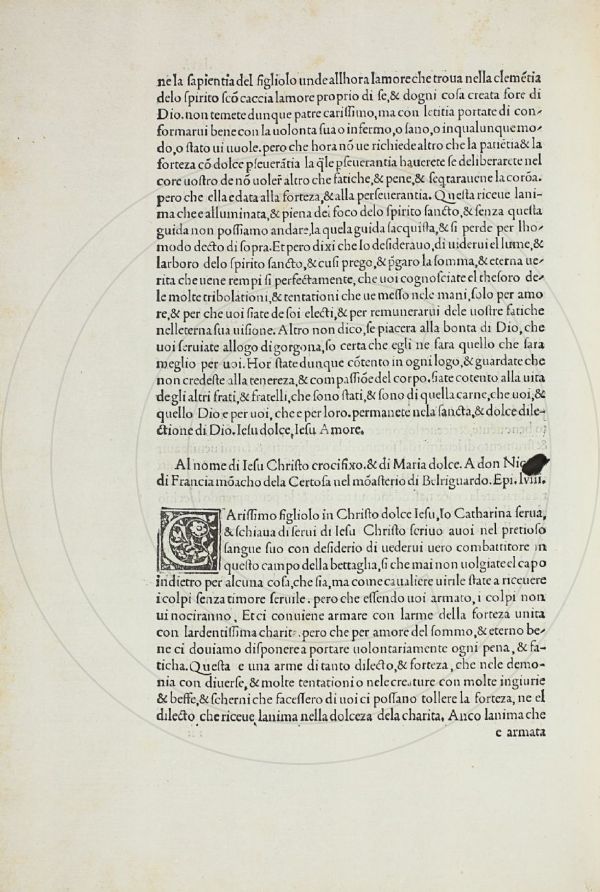 ne la sapientia del figliolo unde allhora lamore che troua nella clemẽtia
delo spirito scõ caccia lamore proprio di se, & dogni cosa creata fore di
Dio. non temete dunque patre carissimo, ma con letitia portate di con-
formarui bene con la uolonta sua o infermo, o sano, o in qualunque mo-
do, o stato ui uuole. pero che hora nõ ue richiede altro che la patiẽtia & la
forteza cõ dolce pseuerãtia la qle pseuerantia hauerete se deliberarete nel
core uostro de nõ uoler altro che fatiche, & pene, & seqtarauene la corõa.
pero che ella e data alla forteza, & alla perseuerantia. Questa riceue lani-
ma che e alluminata, & piena dei foco delo spirito sancto, & senza questa
guida non possiamo andare, la quela guida sacquista, & si perde per lho-
modo decto di sopra. Et pero dixi che lo desiderauo, di uiderui el lume, &
larboro delo spirito sancto, & cusi prego, & pgaro la somma, & eterna ue-
rita che uene rempi si perfectamente, che uoi cognosciate el thesoro de-
le molte tribolationi, & tentationi che ue messo nele mani, solo per amo
re, & per che uoi siate de soi electi, & per remunerarui dele uostre fatiche
nelleterna sua uisione. Altro non dico, se piacera alla bonta di Dio, che
uoi seruiate allogo di gorgona, so certa che egli ne fara quello che sara
meglio per uoi. Hor state dunque cõtento in ogni logo, & guardate che
non credeste alla tenereza, & compassiõe del corpo. siate cotento alla uita
degli altri frati, & fratelli, che sono stati, & sono di quella carne, che uoi, &
quello Dio e per uoi, che e per loro. permanete nela sancta, & dolce dile-
ctione di Dio. Iesu dolce, Iesu Amore.
Al nome di Iesu Christo crocifixo. & di Maria dolce. A don
di Francia mõacho dela Certosa nel mõasterio di Belriguardo. Epi. lviii.
CArissimo figliolo in Christo dolce Iesu, Io Catharina serua,
& schiaua di serui di Iesu Christo scriuo auoi nel pretioso
sangue suo con desiderio di uederui uero combattitore in
questo campo della bettaglia, si che mai non uolgiate el capo
indietro per alcuna cosa, che sia, ma come caualiere uirile state a riceuere
i colpi senza timore seruile. pero che essendo uoi armato, i colpi non
ui nociranno. Et ci conuiene armare con larme della forteza unita
con lardentissima charita. pero che per amore del sommo, & eterno be-
ne ci douiamo disponere a portare uolontariamente ogni pena, & fa-
ticha. Questa e una arme di tanto dilecto, & forteza, che nele demo-
nia con diuerse, & molte tentationi o nele creature con molte ingiurie
& beffe, & scherni che facessero di uoi ci possano tollere la forteza, ne el
dilecto che riceue lanima nella dolceza dela charita. Anco lanima che
e armata